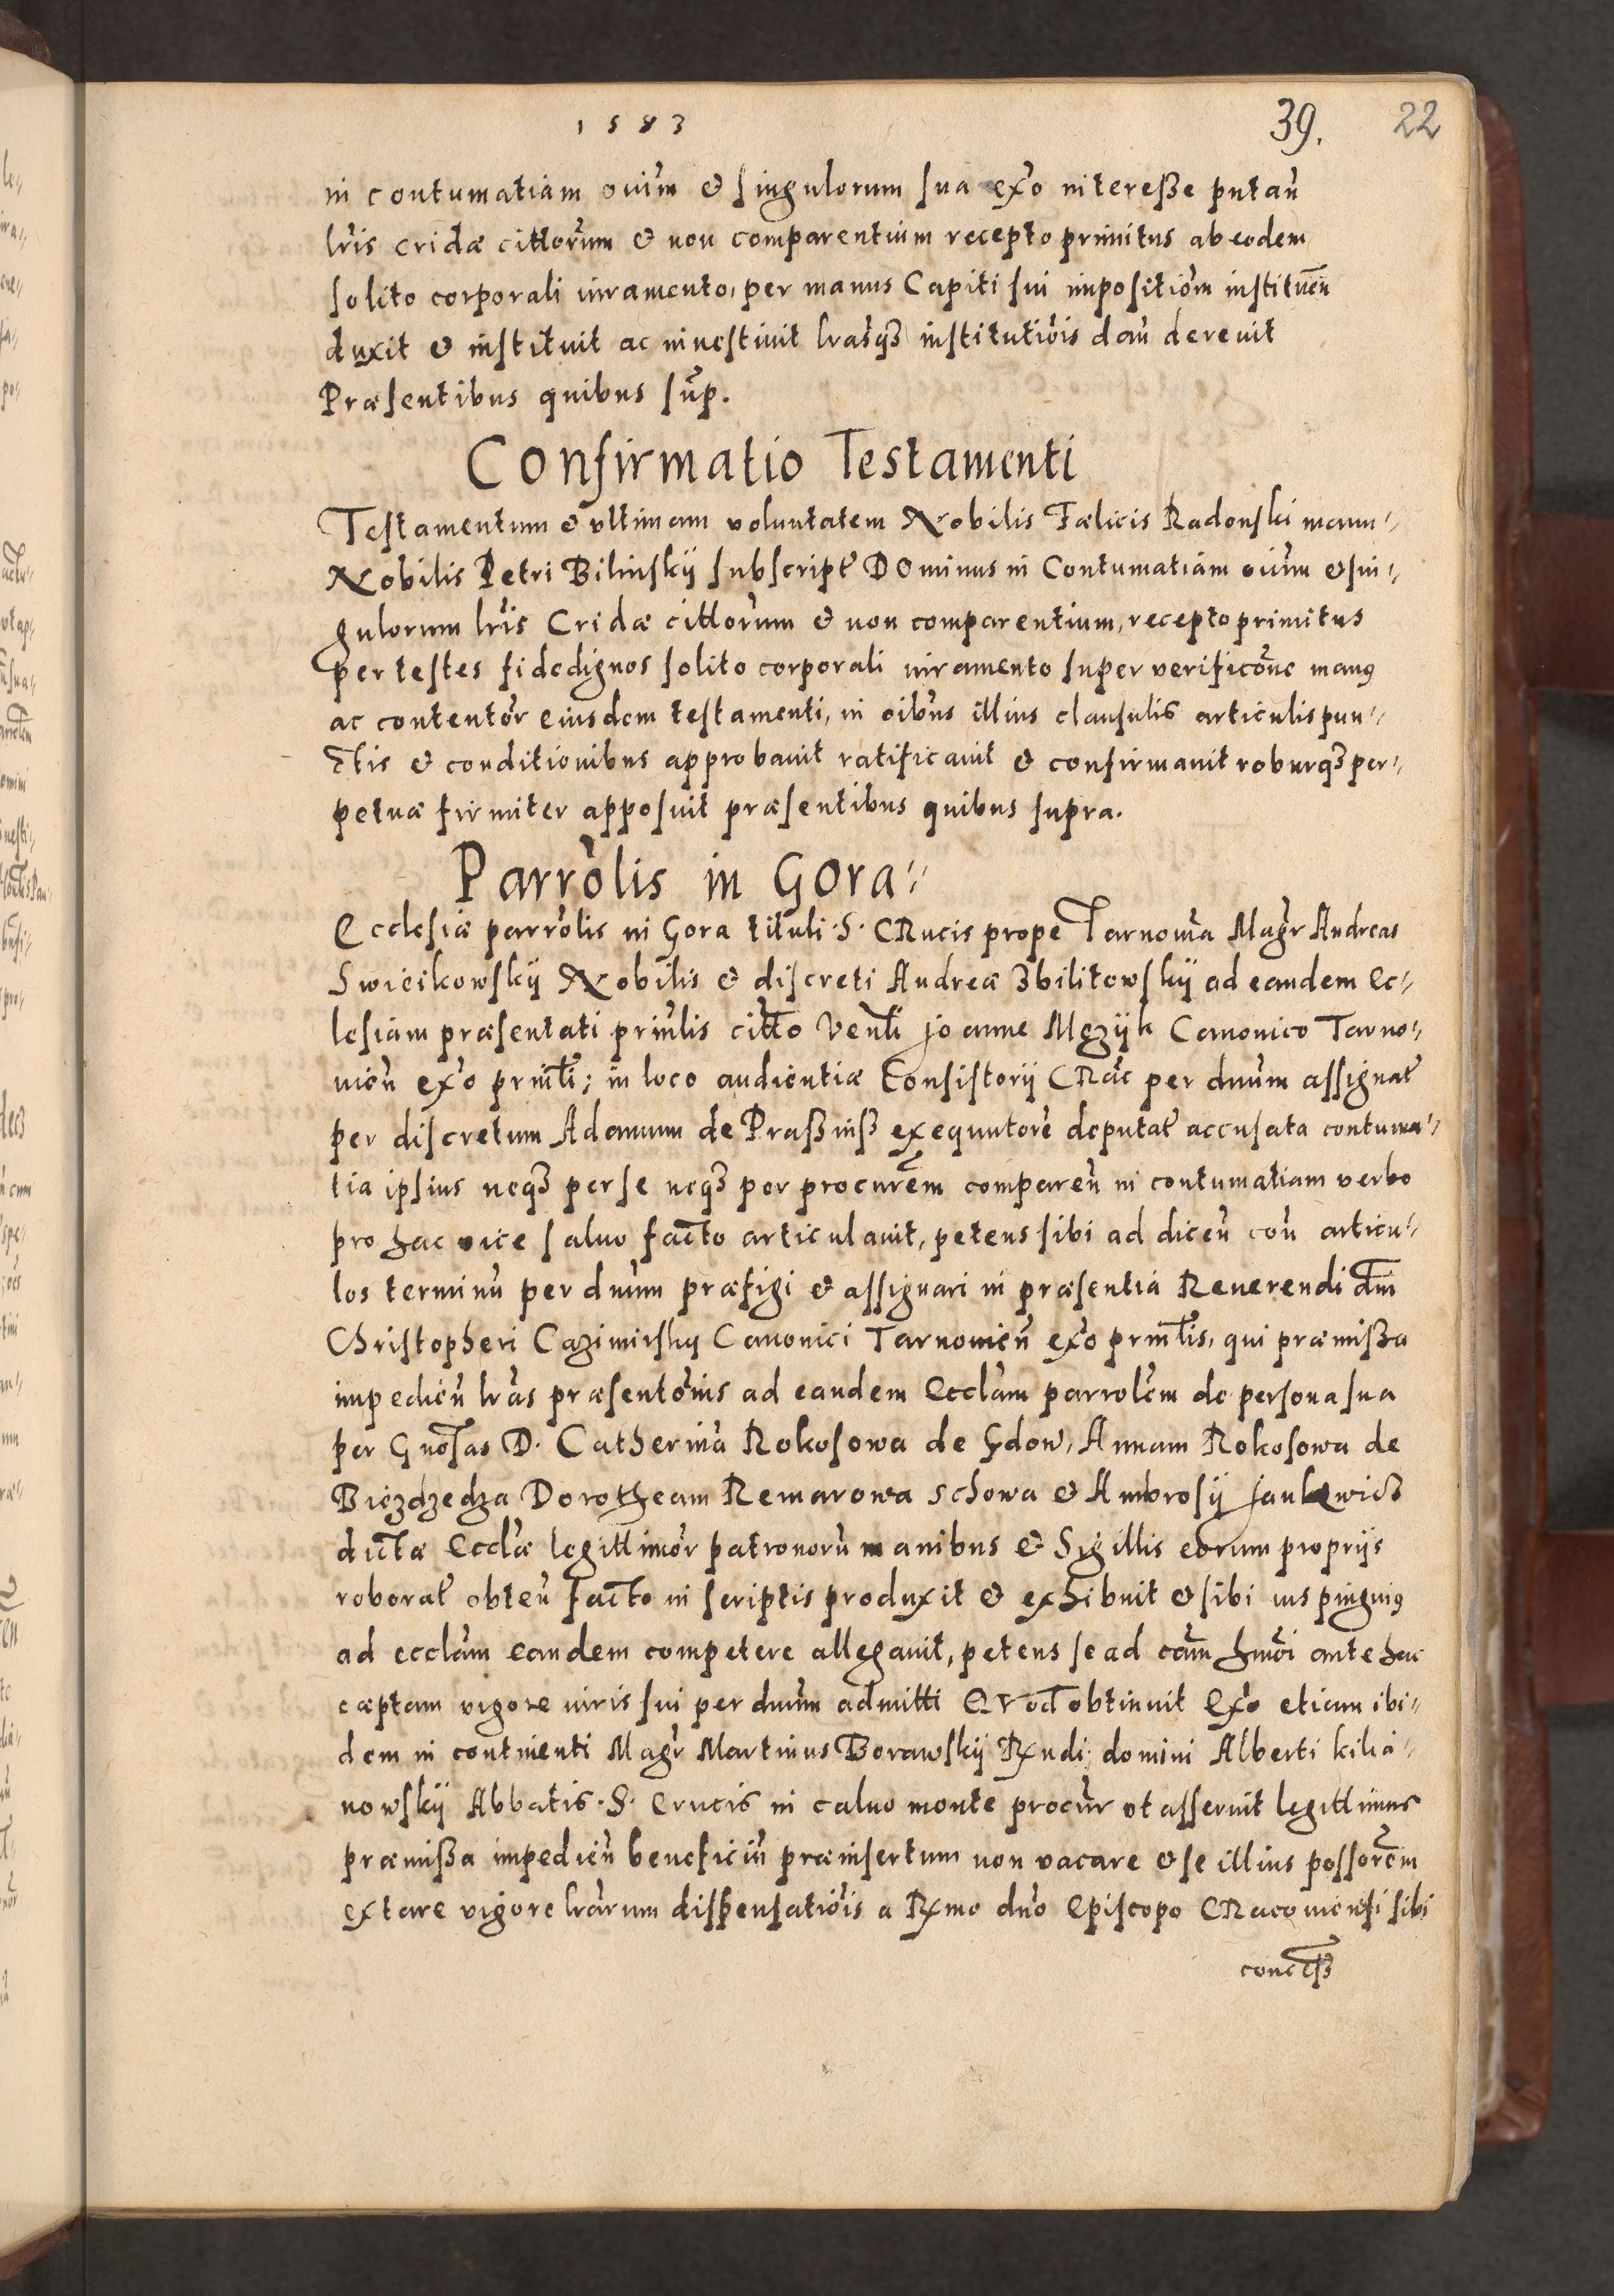 1583 39. 22
in contumatiam oium & singulorum sua exo interesse putan
lris cridæ cittorum & non comparentium recepto primitus ab eodem
solito corporali iuramento, per manus Capiti sui impositiom instituen
duxit & instituit ac inuestiuit lrasqȝ institutiois dan dereuit
Præsentibus quibus sup.
Confirmatio Testamenti
Testamentum & vltimam voluntatem Nobilis Fælicis Radonski manu
Nobilis Petri Bilinskij subscript Dominus in Contumatiam oium & sin
gulorum lris Cridæ cittorum & non comparentium, recepto primitus
per testes fidedignos solito corporali iuramento super verificone manus
ac contentor eiusdem testamenti, in oibus illius clausulis articulis pun
ctis & conditionibus approbauit ratificauit & confirmauit roburqȝ per
petuæ firmiter apposuit præsentibus quibus supra.
Parrolis in Gora
Ecclesiæ parrolis in Gora tituli S. CRucis prope Tarnouia Magr Andreas
Swieikowskij Nobilis & discreti Andreæ Zbilitowskij ad eandem Ec
lesiam præsentati prinlis citto Venli Joanne Mezijk Canonico Tarno
uien exo prinli; in loco audientiæ Consistorij CRac per dnum assignat
per discretum Adamum de Praßniß exequutore deputat accusata contuma
tia ipsius neqȝ per se neqȝ per procurem comparen in contumatiam verbo
pro hac vice saluo facto articulauit, petens sibi ad dicen con articu
los terminu per dnum præfigi & assignari in præsentia Reuerendi dni
Christopheri Cazimirskij Canonici Tarnouien exo prinlis, qui præmissa
impedien lras præsentonis ad eandem Ecclam parrolem de persona sua
per Gnosas D. Catherina Rokosowa de Gdow, Annam Rokosowa de
Biezdzedza Dorotheam Remarowa schowa & Ambrosij
dictæ Ecclæ legittimor patronoru manibus & Sigillis eorum proprijs
roborat obten facto in scriptis produxit & exhibuit & sibi ius pinguius
ad ecclam eandem competere allegauit, petens se ad cam hmoi antehac
cæptam vigore iuris sui per dnum admitti Qvod obtinuit Exo etiam ibi
dem in continenti Magr Martinus Borawskij Rxndi domini Alberti kilia
nowskij Abbatis S. Crucis in caluo monte procur vt asseruit legittimus
præmissa impedien beneficiu præinsertum non vacare & se illius possorem
extare vigore lrarum dispensatiois a Rxmo dno Episcopo CRacouiensi sibi
concess